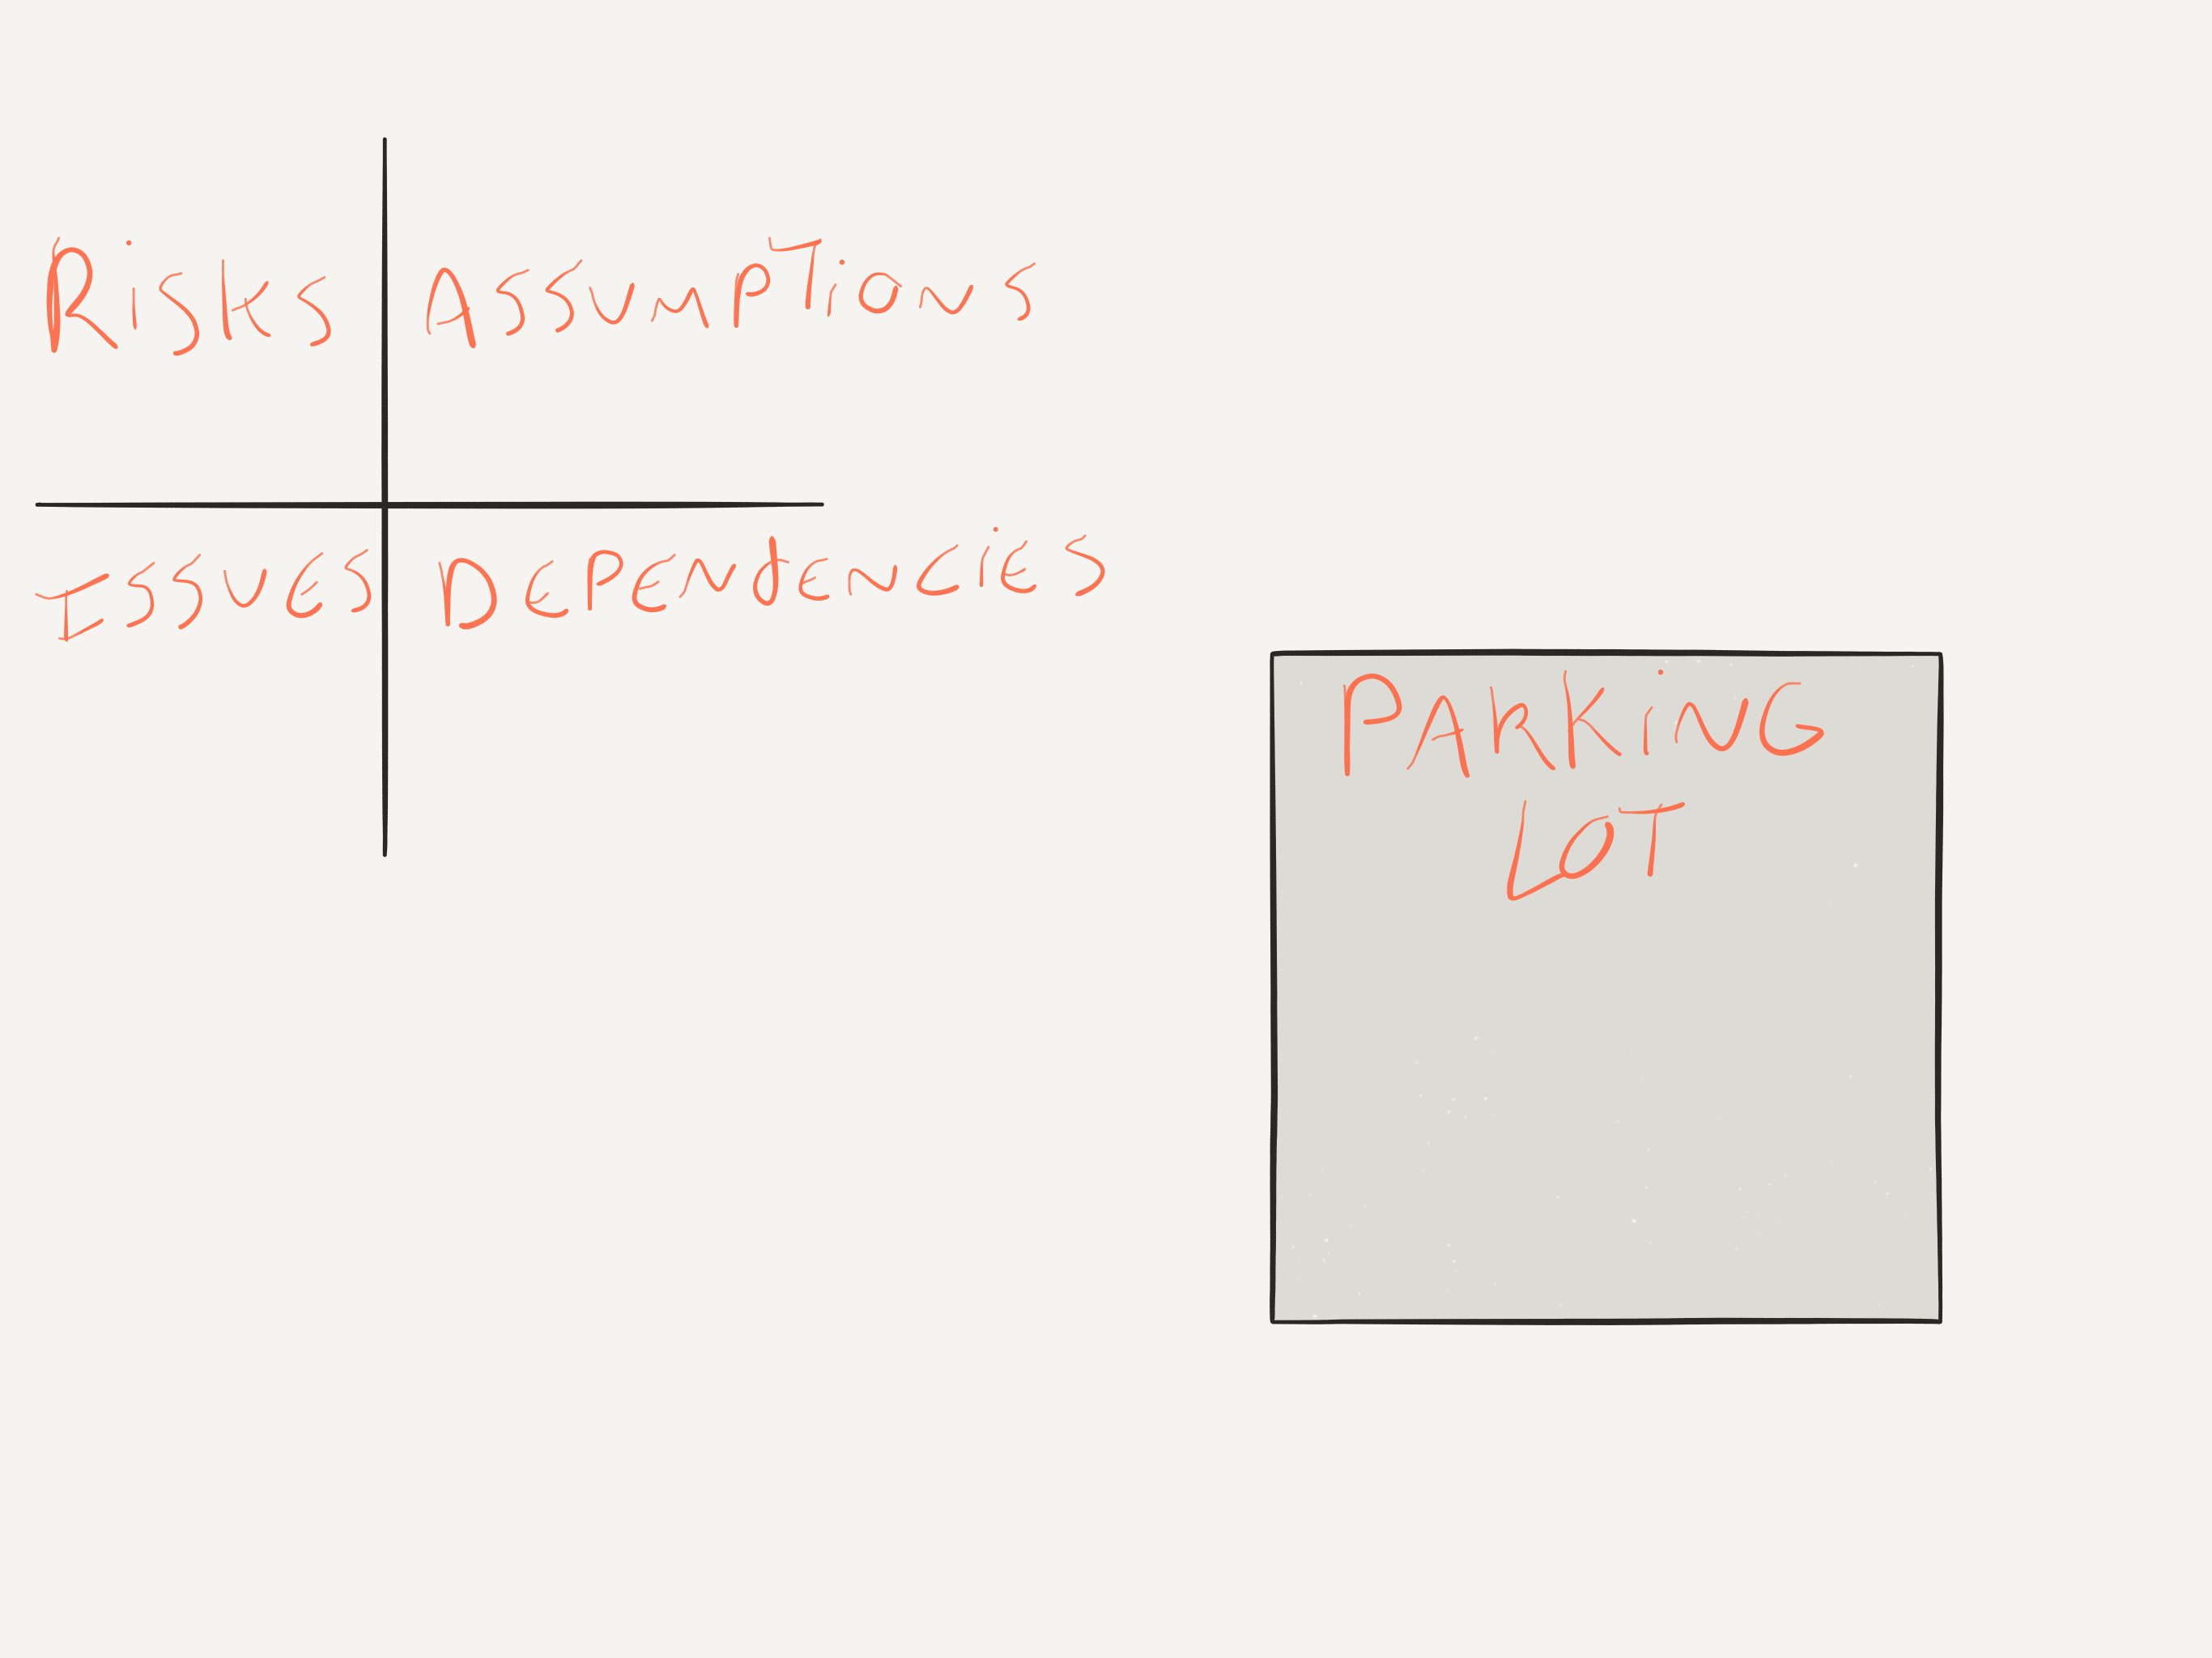 Risks
Assumptions
Issues
Dependencies
Parking
Lot